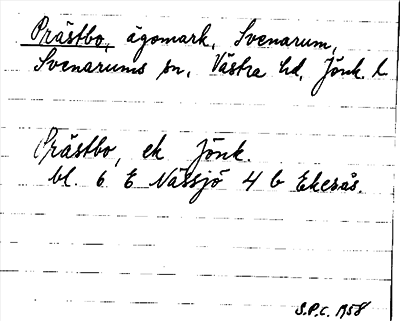 Prästbo, ägomark, Svenarum,
Svenarums sn, Västra hd, Jönk. l
Prästbo, ek Jönk.
bl. 6 E Nässjö 4 b Ekerås.
S.P.C. 1958